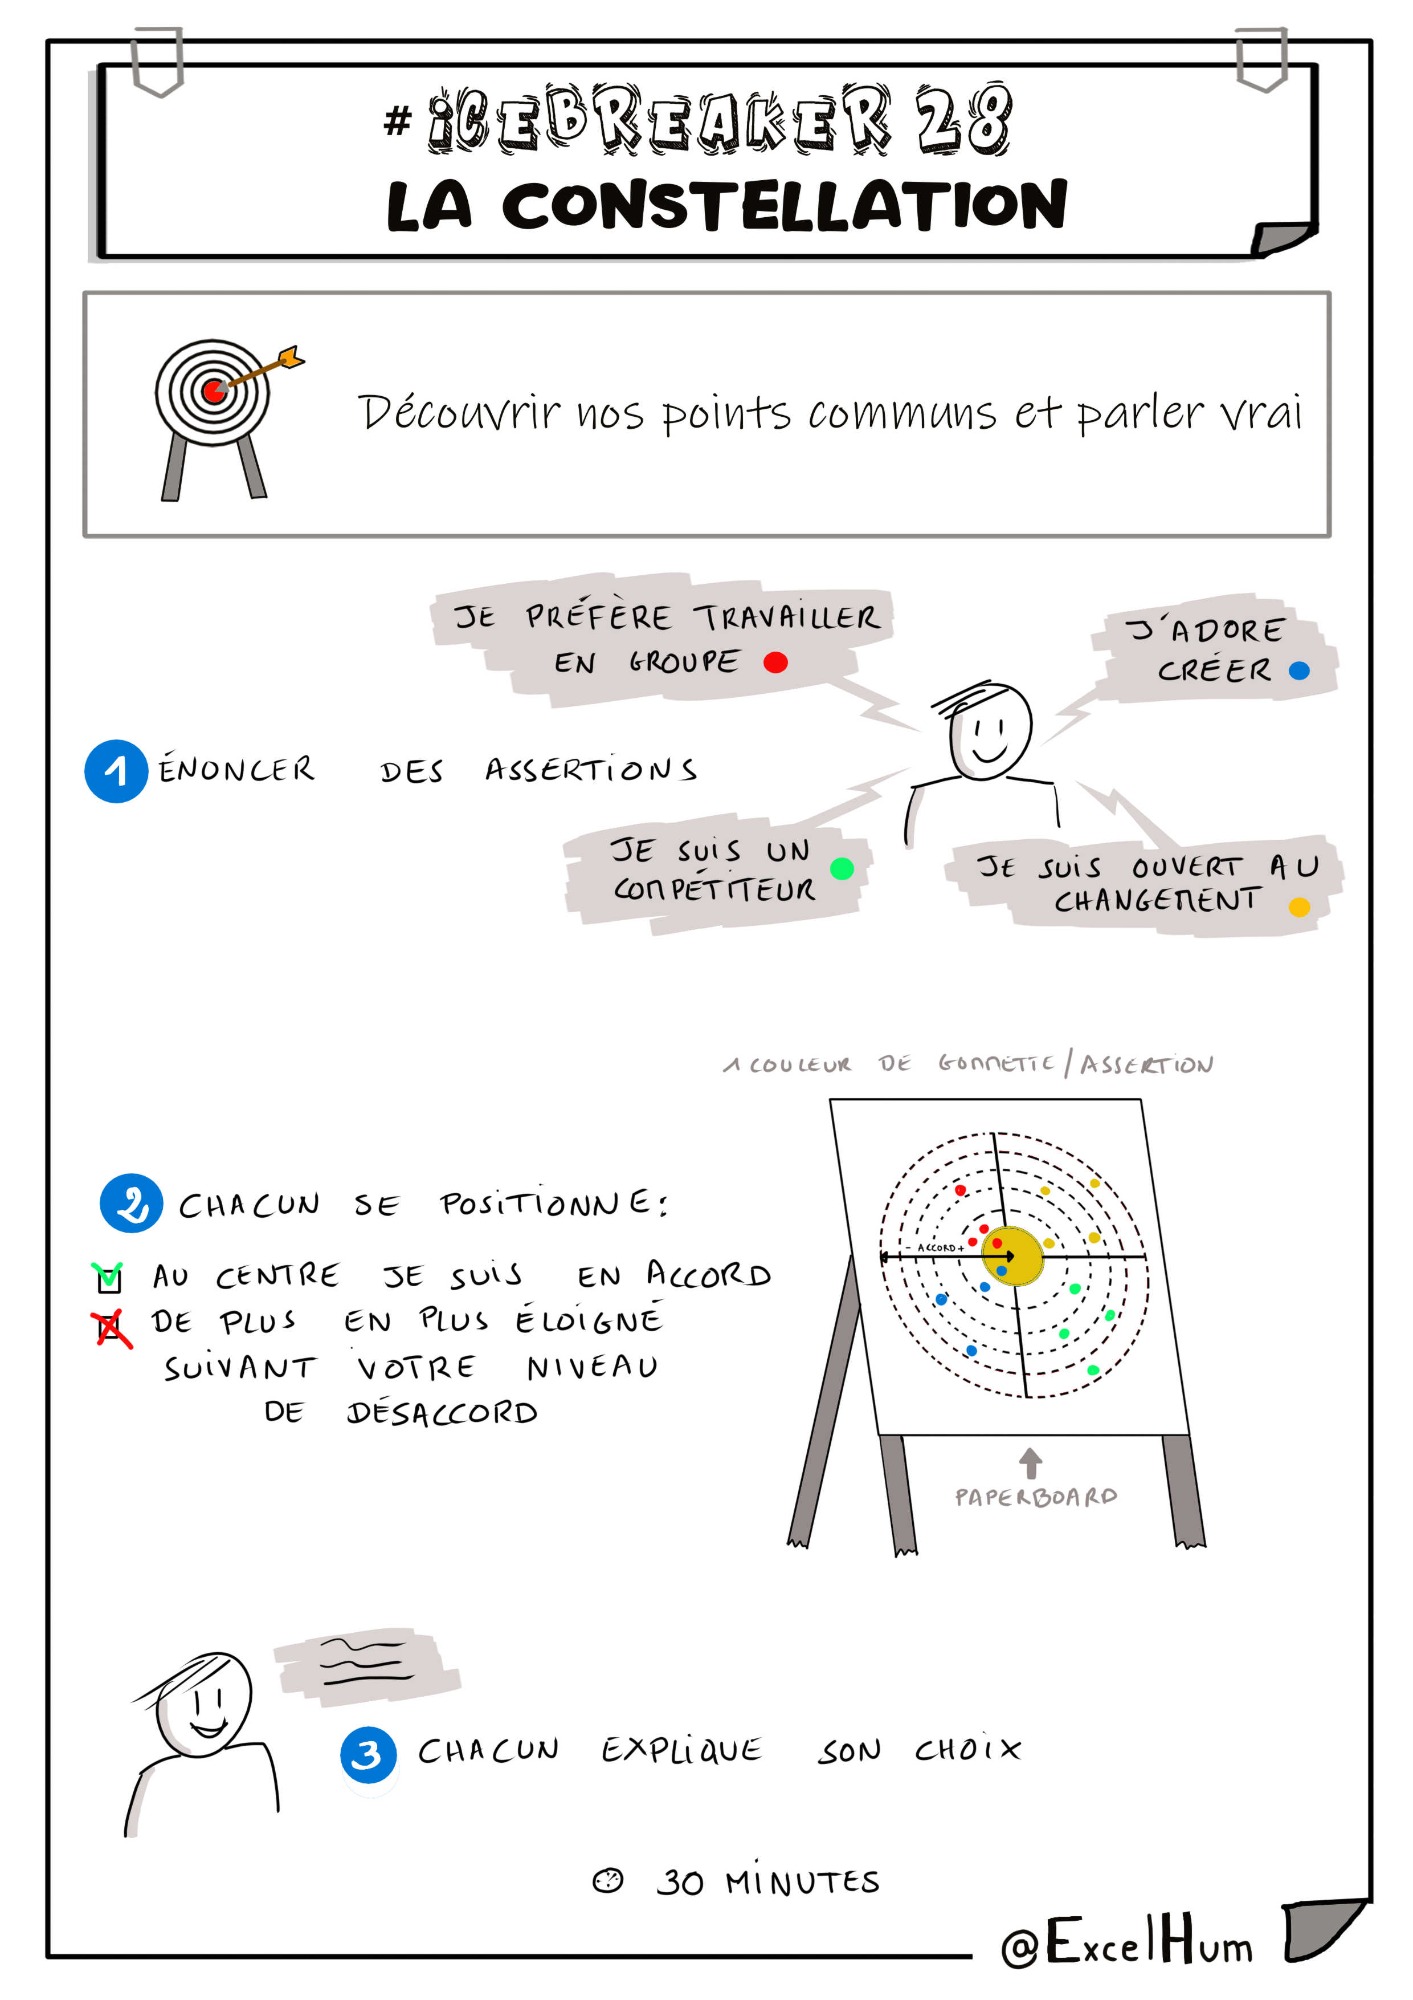 #iCEBREAKER 28
LA CONSTELLATION
Découvrir nos points communs et parler vrai
JE PRÉFÈRE TRAVAiLLER
EN GROUPE
J'ADORE
CRÉER
1 ÉNONCER DES ASSERTiONS
JE SUiS UN
COMPÉTITEUR
JE SUiS OUVERT AU
CHANGEMENT
1 COULEUR DE GOMMETTE/ASSERTiON
2 CHACUN SE POSiTiONNE:
- ACCORD +
AU CENTRE JE SUiS EN ACCORD
DE PLUS EN PLUS ÉLOiGNÉ
SUiVANT VOTRE NiVEAU
DE DÉSACCORD
PAPERBOARD
3 CHACUN EXPLiQUE SON CHOiX
30 MiNUTES
@ExcelHum